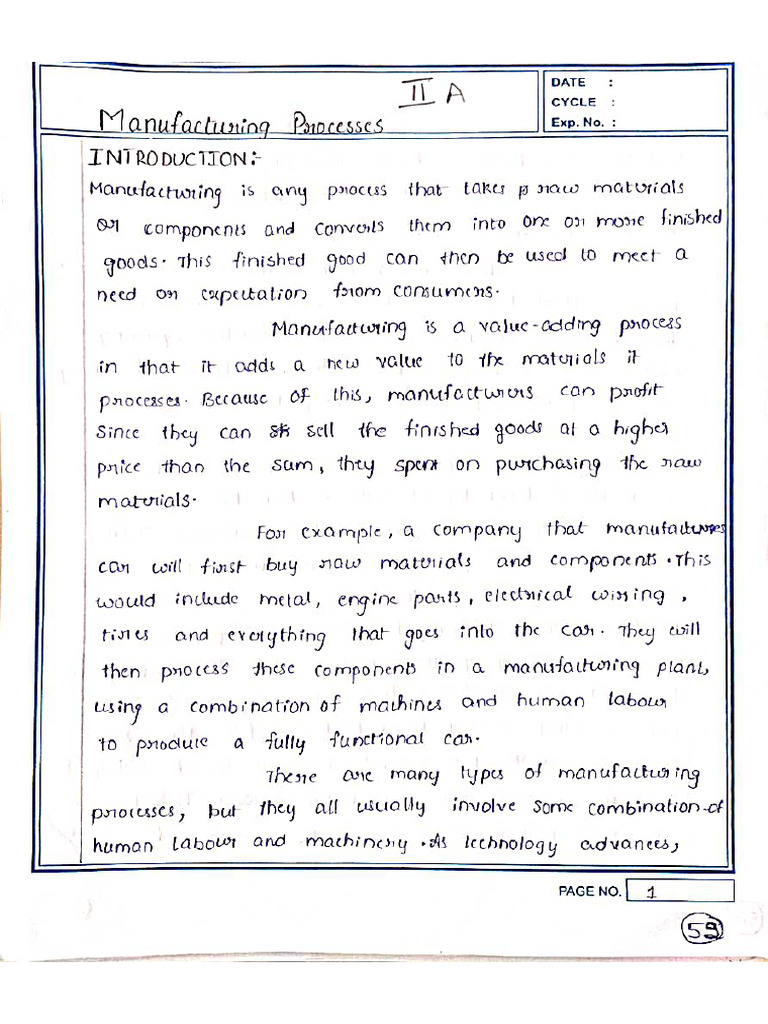 II A
DATE :
CYCLE :
Exp. No. :
Manufacturing Processes
INTRODUCTION:-
Manufacturing is any process that takes raw materials
or components and converts them into one or more finished
goods. This finished good can then be used to meet a
need or expectation from consumers.
Manufacturing is a value-adding process
in that it adds a new value to the materials it
processes. Because of this, manufacturers can profit
since they can sell the finished goods at a higher
price than the sum, they spent on purchasing the raw
materials.
For example, a company that manufactures
car will first buy raw materials and components. This
would include metal, engine parts, electrical wiring,
tires and everything that goes into the car. They will
then process these components in a manufacturing plant,
using a combination of machines and human labour
to produce a fully functional car.
There are many types of manufacturing
processes, but they all usually involve some combination of
human labour and machinery. As technology advances,
PAGE NO. 1
59